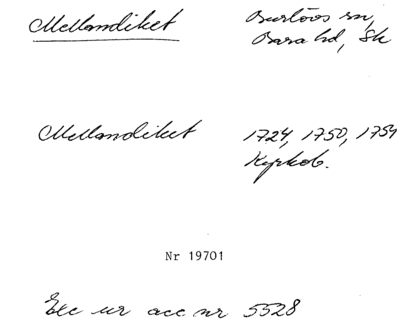 Mellandiket Burlövs sn,
Bara hd, Sk
Mellandiket 1724, 1750, 1754
Kyrkob.
Nr 19701
Exc ur acc nr 5528